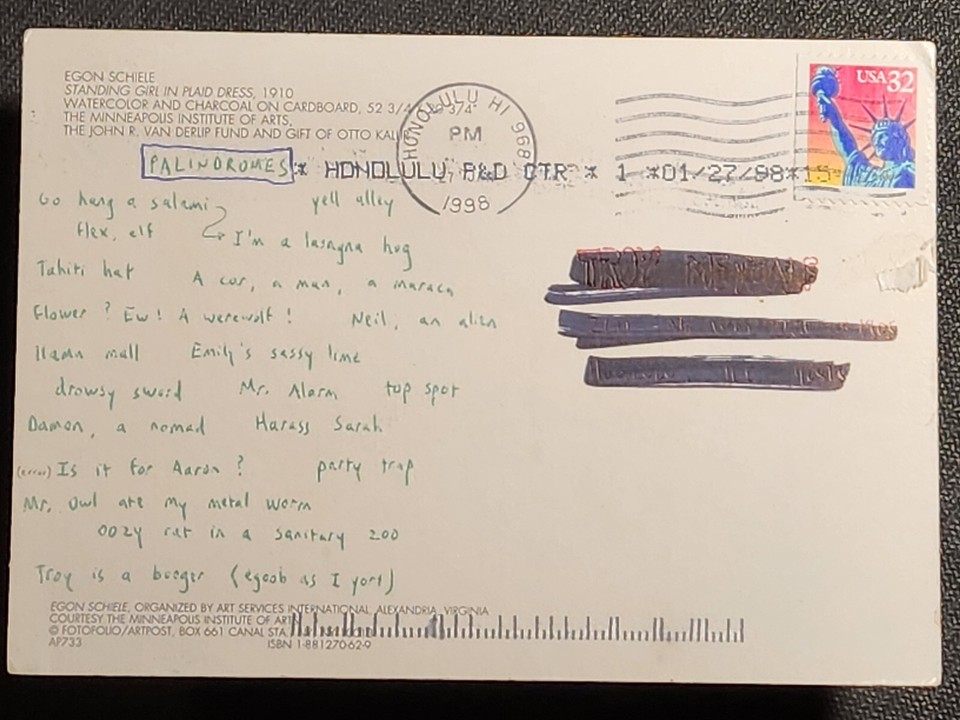 EGON SCHIELE
STANDING GIRL IN PLAID DRESS, 1910
WATERCOLOR AND CHARCOAL ON CARDBOARD, 52 3/4
THE MINNEAPOLIS INSTITUTE OF ARTS,
THE JOHN R. VAN DERLIP FUND AND GIFT OF OTTO
HONOLULU HI 968
PM
1998
USA 32
PALINDROMES * HONOLULU P&D CTR * 1 *01/27/98*15
Go hang a salami yell alley
flex, elf I'm a lasagna hog
Tahiti hat A car, a man, a maraca
Flower? Ew! A werewolf! Neil, an alien
llama mall Emily's sassy lime
drowsy sword Mr. Alarm top spot
Damon, a nomad Harass Sarah
(error) Is it for Aaron? party trap
Mr. Owl ate my metal worm
oozy rat in a sanitary zoo
Troy is a booger (egoob as I yort)
EGON SCHIELE, ORGANIZED BY ART SERVICES INTERNATIONAL, ALEXANDRIA, VIRGINIA
COURTESY THE MINNEAPOLIS INSTITUTE OF ART
© FOTOFOLIO/ARTPOST, BOX 661 CANAL STA.
AP733 ISBN 1-881270-62-9